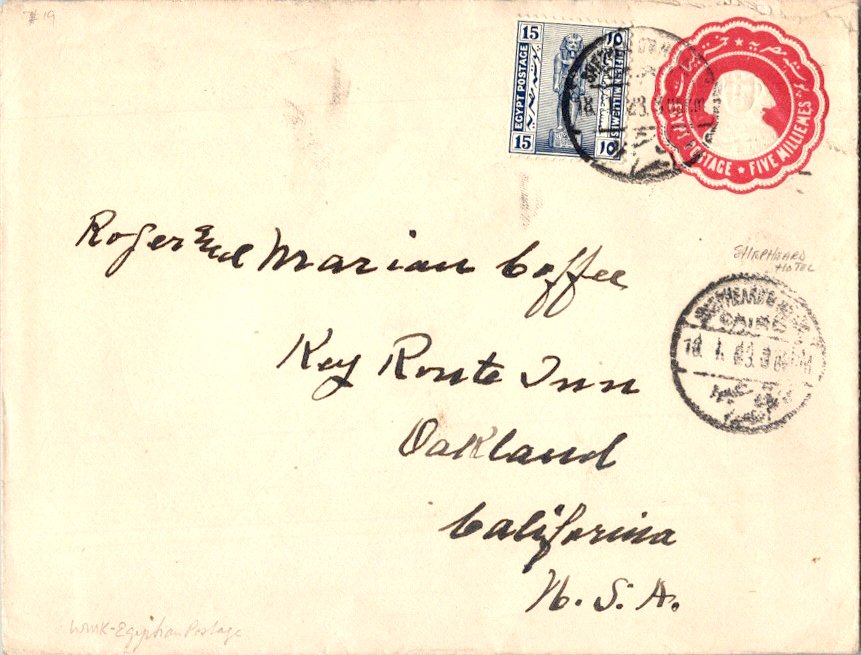 # 19
15 15
EGYPT POSTAGE
FIFTEEN MILLIEMES
15 ١٥
POSTAGE ★ FIVE MILLIEMES
18. I. 23.
Roger and Marian Coffee
SHEPHEARD
HOTEL
SHEPHEARD'S HOTEL
CAIRO
18. I. 23.
Key Route Inn
Oakland
California
U. S. A.
WMK-Egyptian Postage